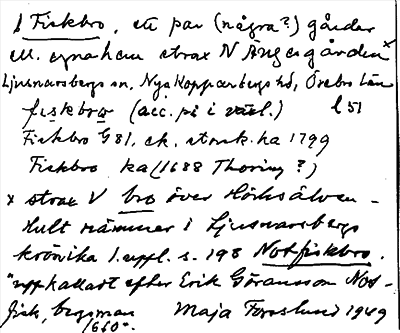 1 Fiskbro, ett par (några?) gårdar
ell. egnahem strax N Ängesgården x
Ljusnarsbergs sn, Nya Kopparbergs hd, Örebro län
fiskbro (acc. på i växl.) l 51
Fiskbro G 81, ek. storsk. ka 1799
Fiskbro ka (1688 Thoring?)
x strax V bro över Hörksälven -
Hult nämner i Ljusnarsbergs
krönika 1. uppl. s. 198 Notfiskbro.
"uppkallat efter Erik Göransson Not-
fisk, bergsman Maja Forslund 1949
1660".